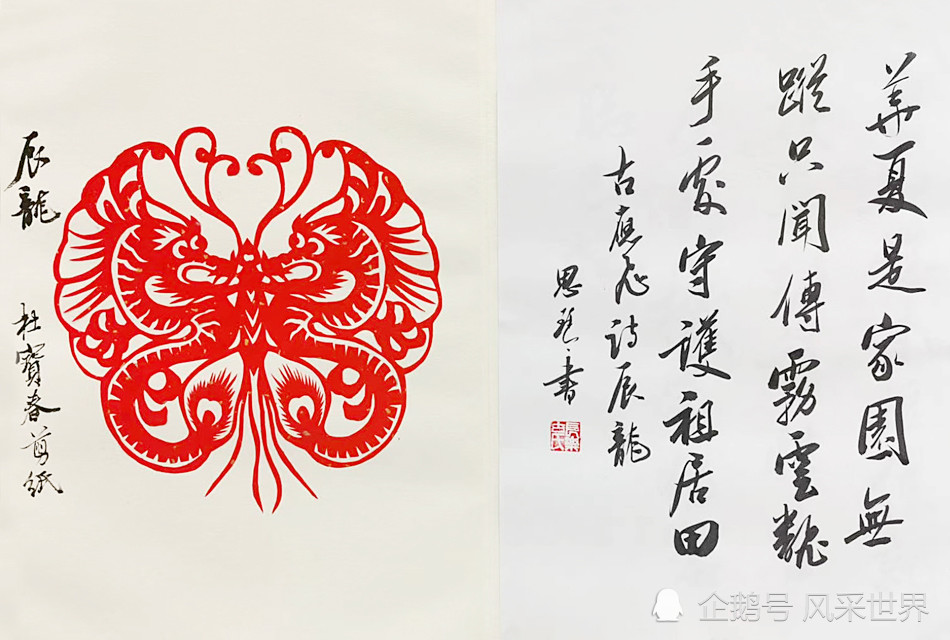 辰龍
杜寶春剪紙
華夏是家園無
蹤只聞傳霧雲
手處守護祖居田
古應飛詩辰龍
思書
企鹅号 风采世界